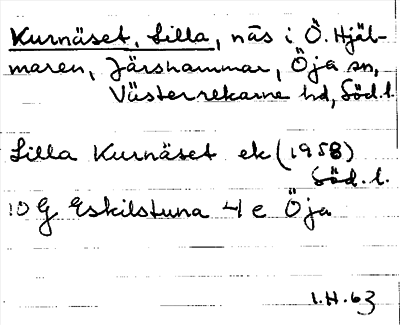 Kurnäset, Lilla, näs i Ö. Hjäl-
maren, Järshammar, Öja sn,
Västerrekarne hd, Söd.l.
Lilla Kurnäset ek (1958)
Söd.l.
10 G Eskilstuna 4 e Öja
I.H.63